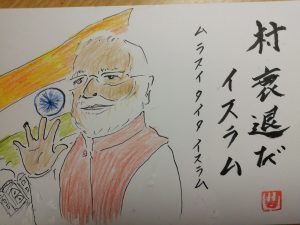 村衰退だ
イスラム
ムラスイタイダイスラム